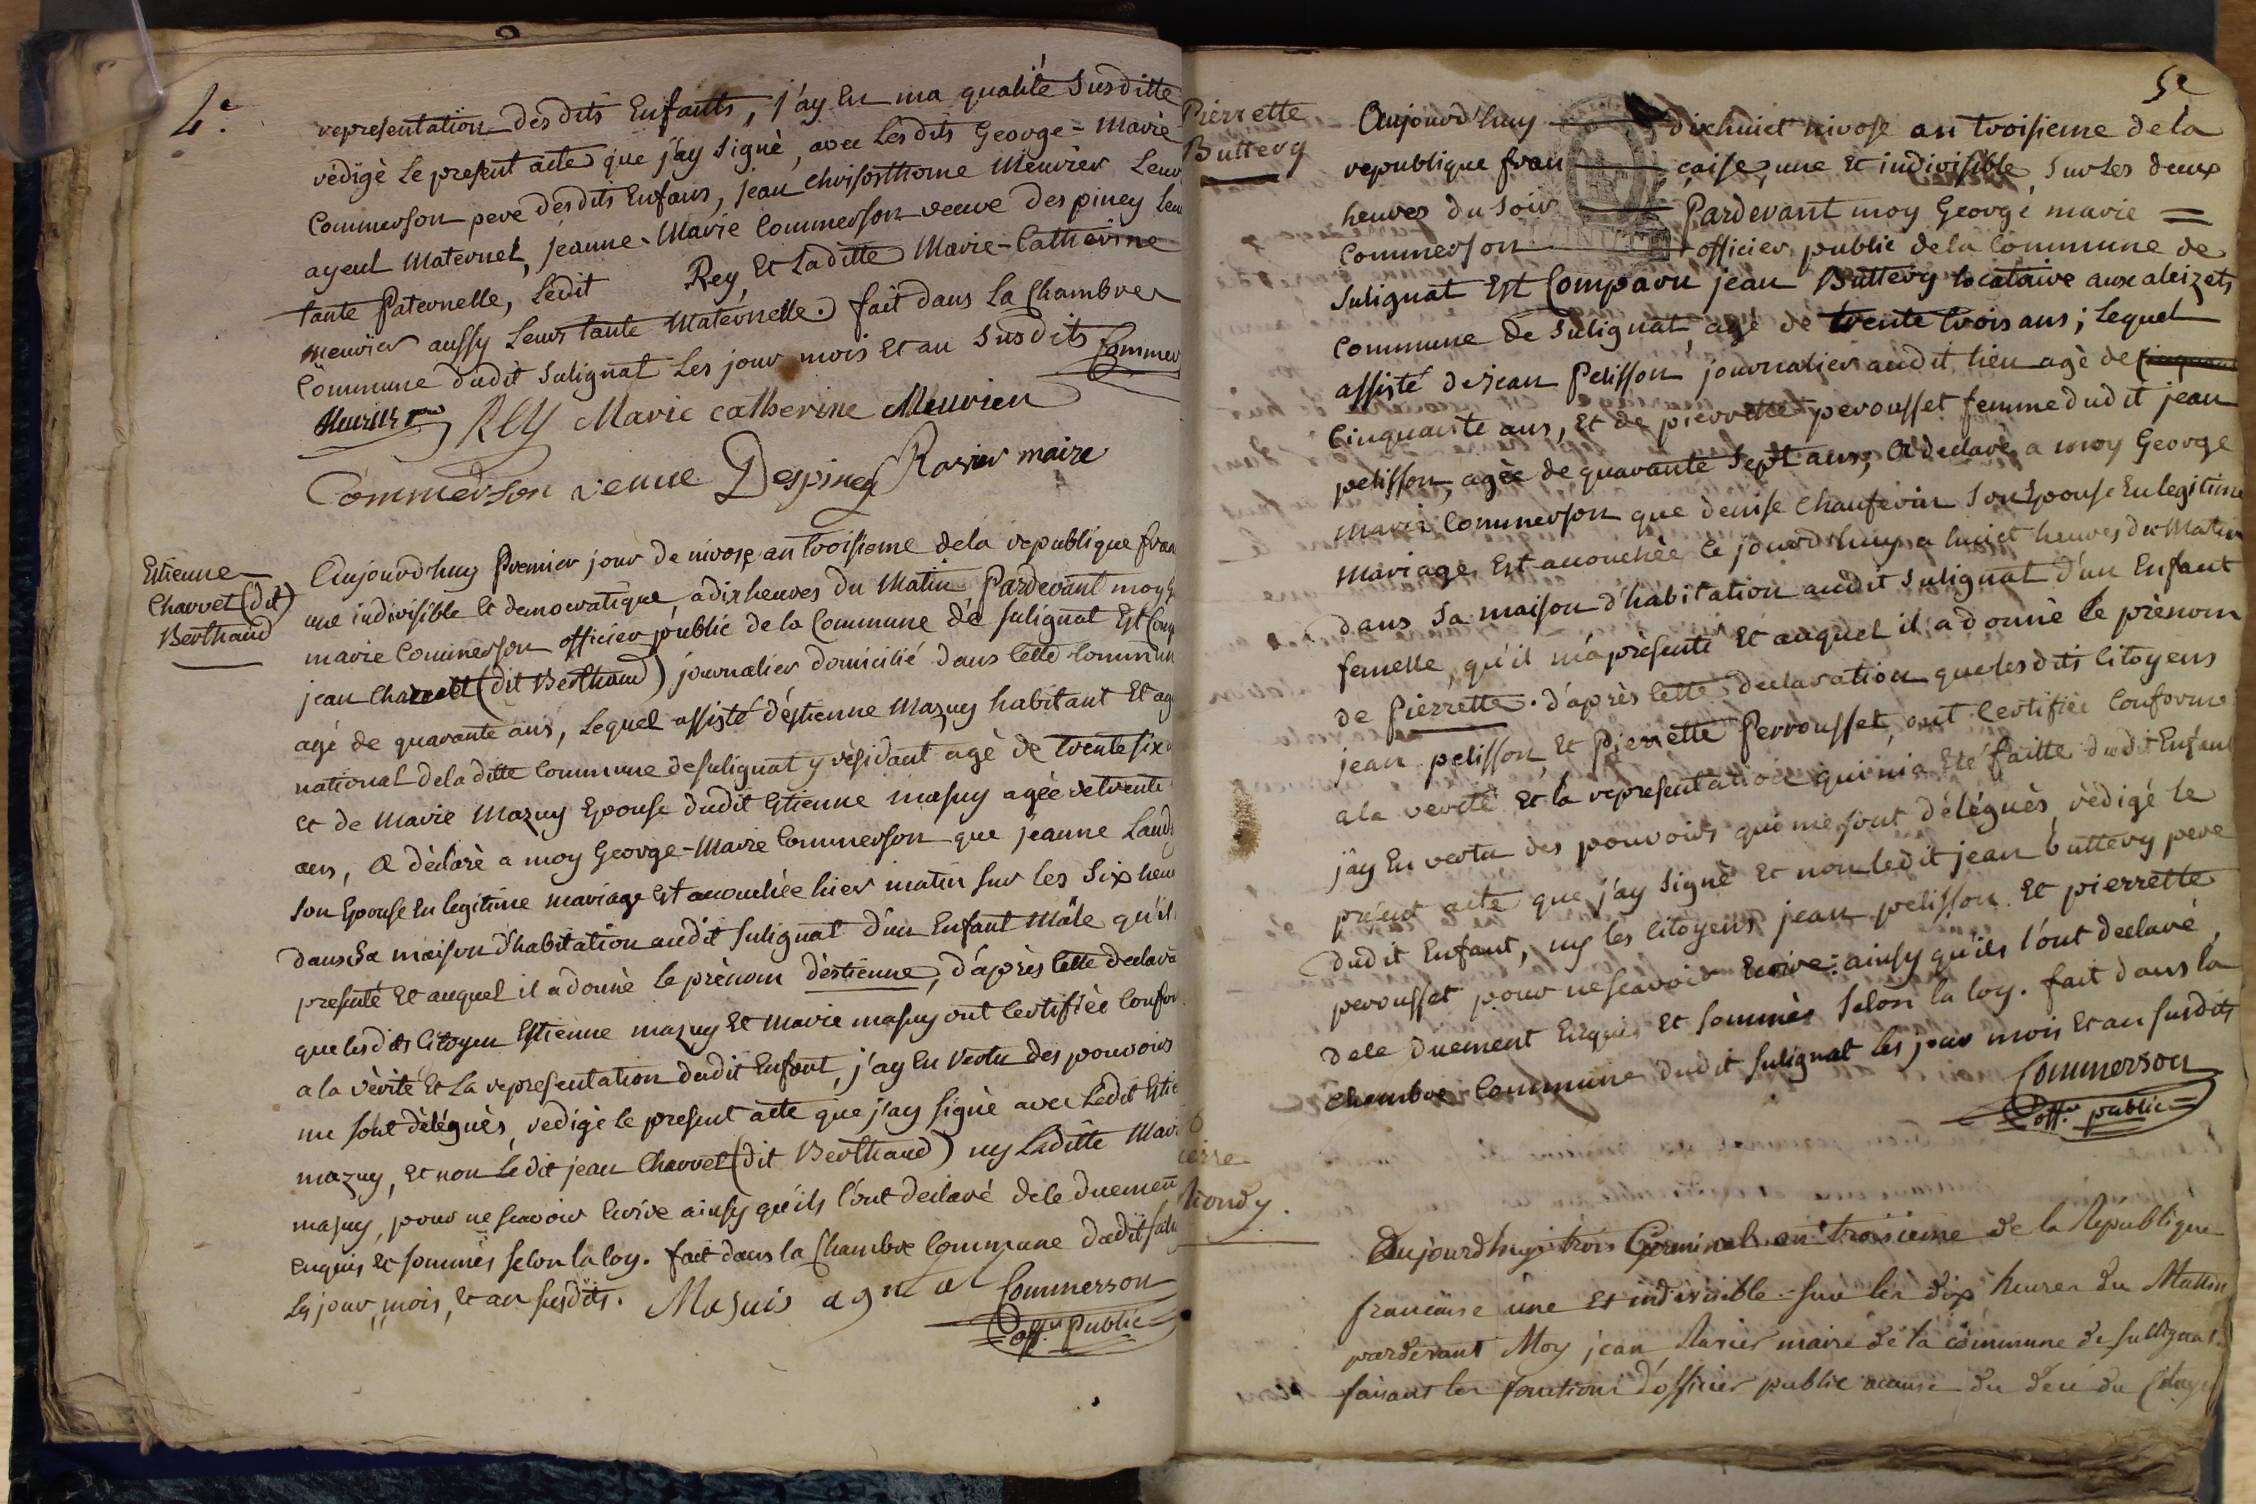 4e.
representation desdits Enfants, j'ay En ma qualité Susditte
rédigé Le present acte que j'ay Signé, avec Lesdits George=Marie
Commerson pere desdits Enfans, jean chrisosthome Meurier Leur
ayeul Maternel, jeanne-Marie Commerson veuve Despiney leur
tante Paternelle, Ledit Rey, Et Laditte Marie-Catherine
meurier aussy Leurs tante Maternelle. fait dans La Chambre
Commune dudit Sulignat Les jour mois Et an Susdits Commer
Meurier REY Marie catherine Meurier
Commerson veuve Despiney Ravier maire
Etienne
Charvet (dit)
Berthaud
Aujourd'huy Premier jour de nivose an troisieme dela republique fran
une indivisible Et democratique, a dix heures du Matin, Pardevant moy
marie Commerson officier public de la Commune de Sulignat Est Comp
jean Charvet (dit Berthaud) journalier domicilié dans Cette Commun
agé de quarante ans, Lequel assisté d'éstienne Mazuy habitant Et ag
national deladitte Commune de sulignat y résidant agé de trente six
Et de Marie Mazuy Epouse dudit Etienne masuy agée de trente
ans, A déclaré a moy George-Marie Commerson que jeanne Land
Son Epouse En legitime mariage Est accouchée hier matin sur les Six heu
dans Sa maison d'habitation audit Sulignat d'un Enfant Mâle qu'il
presenté Et auquel il a donné le prénom d'éstienne, d'après Cette declara
que lesdits Citoyen Estienne mazuy Et Marie masuy ont Certifiée Confor
a la vérité Et La representation dudit Enfant, j'ay En vertu des pouvoirs
me sont délégués, redigé le present acte que j'ay signé avec Ledit Esti
mazuy, Et non Ledit jean Charvet (dit Berthaud) ny Laditte Mari
masuy, pour ne scavoir Ecrire ainsy qu'ils l'ont declaré dele duement
enquis Et sommés selon la loy. fait dans la Chambre Commune dudit Suli
Les jour, mois, Et an susdits. Masuis agnal Commerson
offer. public
5e
Pierrette
Buttery
Aujourd'huy dixhuict nivose an troisieme de la
republique fran caise, une Et indivisible, Sur Les deux
heures du Soir Pardevant moy George marie =
Commerson officier public dela Commune de
Sulignat Est Comparu jean Buttery locataire aux aleizets
Commune de Sulignat, agé de trente trois ans; Lequel
assisté de jean Pelisson journalier audit lieu agé de
Cinquante ans, Et de pierrette perousset femme dudit jean
pelisson, agée de quarante Sept ans; A declaré a moy George
Marie Commerson que denise Chauferin Son Epouse En legitime
Mariage Est accouchée Ce jourd'huy a huict heures du Matin
dans Sa maison d'habitation audit Sulignat d'un Enfant
femelle, qu'il m'a présenté Et auquel il a donné Le prénom
de Pierrette. d'après Cette declaration que lesdits Citoyens
jean pelisson, Et Pierrette Perrousset, ont Certifiée Conforme
a la verité Et la representation qui m'a Eté faitte dudit Enfant
j'ay En vertu des pouvoirs qui me sont délégués, rédigé le
présent acte que j'ay Signé Et non ledit jean buttery pere
dudit Enfant, ny les Citoyens jean pelisson Et pierrette
perousset pour ne scavoir Ecrire: ainsy qu'ils l'ont declaré,
dele duement Enquis Et Sommés Selon la loy. fait dans la
Chambre Commune dudit Sulignat les jour mois Et an susdits
Commerson
offer. public
ierre
Biondy.
Aujourdhuy trois Germinal an troisieme de la Republique
francaise une et indivisible sur les dix heures du Mattin
pardevant Moy jean Ravier maire de la commune de Sullignat
faisant les fonctions d'officier public acause du deci du Citoyen